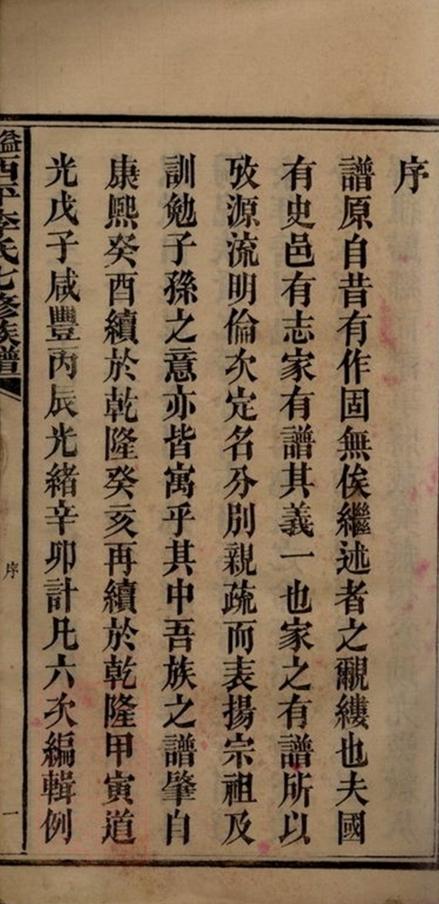 序
譜原自昔有作固無俟繼述者之覼縷也夫國
有史邑有志家有譜其義一也家之有譜所以
攷源流明倫次定名分別親疏而表揚宗祖及
訓勉子孫之意亦皆寓乎其中吾族之譜肇自
康熙癸酉續於乾隆癸亥再續於乾隆甲寅道
光戊子咸豐丙辰光緒辛卯計凡六次編輯例
益西平李氏七修族譜
序
一